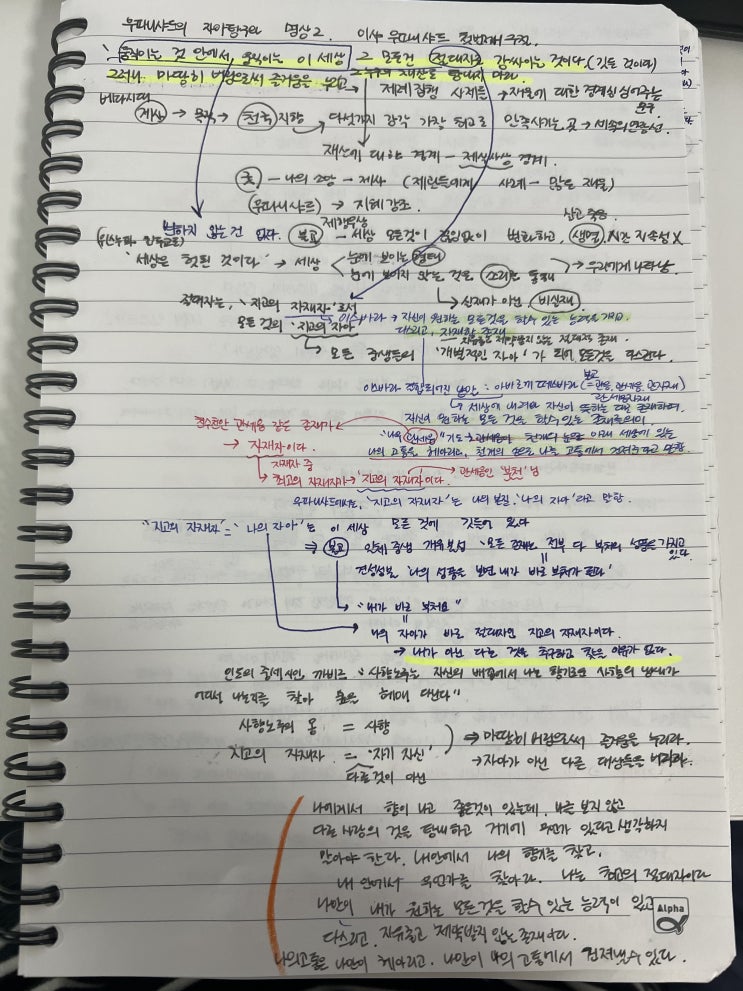 우파니샤드의 자아탐구와 명상 2. 이샤 우파니샤드 첫번째 구절
움직이는 것 안에서, 움직이는 이 세상 그 모든건 절대자로 감싸이는 것이다 (깃든 것이다)
그러니 마땅히 버림으로써 즐거움을 누리고 누구의 재산도 탐내지 마라
베다시대 제례집행 사제들 → 재물에 대한 경계심 심어주는 문구
제사 → 목적 → 천국 지향 → 다섯가지 감각 가장 최고로 만족시키는 곳 → 세속의 연장선
재산에 대한 경계 - 제식사상 경계.
나의 소망 → 제사 (제관들에게 사례 - 많은 재물)
(우파니샤드) → 지혜 강조
변하지 않는 건 없다. 불교 - 세상 모든것이 끊임없이 변화하고, 생멸, 시간 지속성 X
제행무상
"세상은 헛된 것이다" → 세상
눈에 보이는 형태
눈에 보이지 않는 것은 소리로 통해
→ 우리에게 나타남
실재가 아닌, 비실재
절대자는, '지고의 자재자'로서 이슈바라 → 자신이 원하는 모든것을 할 수 있는 능력을 가지고
모든 것의 '지고의 자아' 다스리고, 자재한 존재
→ 모든 중생들의 '개별적인 자아'가 되어 모든것을 다스린다.
불교
→ 세상에 내려와 자신이 뜻하는 대로 존재하며.
자신이 원하는 모든 것을 할수 있는 존재들의미
관세음 같은 존재가
→ 자재자이다.
"나의 관세음" 기도 → 관세음이 천개의 눈으로 아래 세상에 있는
나의 고통을 헤아리고, 천개의 손으로 나를 고통에서 건져주라고 말함.
자재자 중
→ 최고의 자재자가 → '지고의 자재자'이다. → 관세음인 '부처'님
우파니샤드에서는, '지고의 자재자'는 나의 본질, '나의 자아'라고 말함.
"지고의 자재자' = '나의 자아'는 이 세상 모든 것에 깃들어 있다
⇒ 불교 일체 중생 개유불성 "모든 존재는 전부 다 부처의 성품을 가지고 있다
견성성불 "나의 성품을 보면 내가 바로 부처가 된다"
→ "내가 바로 부처요"
나의 자아가 바로 절대자인 지고의 자재자이다.
→ 내가 아닌 다른 것을 추구하고 찾을 이유가 없다.
인도의 중세시인, 까비르 "사향노루는 자신의 배꼽에서 나는 향기로운 사향의 냄새가
어디서 나는지를 찾아 숲을 헤매 다닌다"
사향노루의 몸 = 사향
지고의 자재자 = '자기 자신'
다른것이 아닌
⇒ 마땅히 버림으로써 즐거움을 누리라.
→ 자아가 아닌 다른 대상들을 버리라.
나에게서 향이 나고 좋은것이 있는데, 나를 보지 않고
다른 사람의 것을 탐내하고 거기에 무언가 있다고 생각하지
말아야 한다. 내안에서 나의 향기를 찾고,
내 안에서 무언가를 찾아라. 나는 최고의 절대자이다
나만이 내가 원하는 모든것을 할수 있는 능력이 있고
다스리고, 자유롭고 제약받지 않는 존재이다.
나의고통은 나만이 헤아리고, 나만이 나의 고통에서 건져낼수 있다.
Alpha